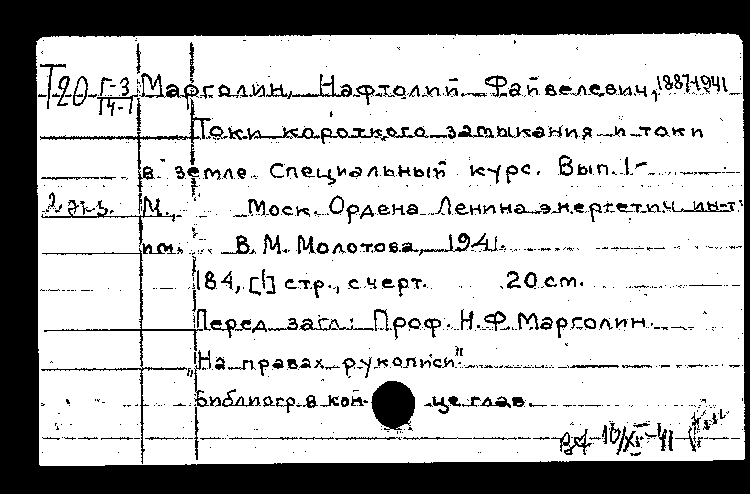 Т20 Г-3 Марголин, Нафтолий Файвелевич, 1887-1941
14-1
Токи короткого замыкания и токи
в земле. Специальный курс. Вып. 1-
2 экз. М., Моск. Ордена Ленина энергетич. ин-т
им. В. М. Молотова, 1941.
184, [1] стр., с черт. 20 см.
Перед загл.: Проф. Н. Ф. Марголин.
"На правах рукописи"
Библиогр. в конце глав.
10/XI-41